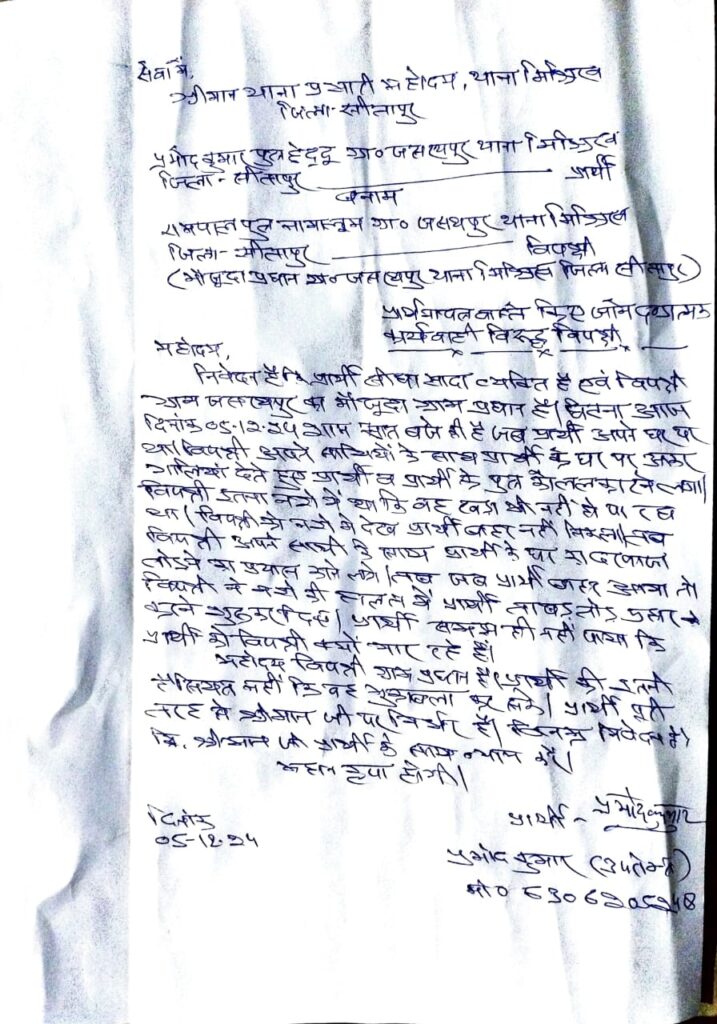 सेवा में,
श्रीमान थाना प्रभारी महोदय, थाना मिश्रिख
जिला- सीतापुर
प्रमोद कुमार पुत्र ग्रा० जसरथपुर थाना मिश्रिख
जिला- सीतापुर — प्रार्थी
बनाम
रामपाल पुत्र ग्रा० जसरथपुर थाना मिश्रिख
जिला- सीतापुर — विपक्षी
(मौजूदा प्रधान ग्रा० जसरथपुर थाना मिश्रिख जिला सीतापुर)
प्रार्थनापत्र वास्ते किए जाने दण्डात्मक
कार्यवाही विरुद्ध विपक्षी
महोदय,
निवेदन है कि प्रार्थी सीधा सादा व्यक्ति है एवं विपक्षी
ग्राम जसरथपुर का मौजूदा ग्राम प्रधान है। घटना आज
दिनांक 05-12-24 शाम सात बजे की है जब प्रार्थी अपने घर पर
था। विपक्षी अपने साथियों के साथ प्रार्थी के घर पर आकर
गालियां देते हुए प्रार्थी व प्रार्थी के पुत्र को ललकारने लगा।
विपक्षी इतना नशे में था कि वह खड़ा भी नहीं हो पा रहा
था। विपक्षी को नशे में देख प्रार्थी बाहर नहीं निकला। तब
विपक्षी अपने साथी के साथ प्रार्थी के घर का दरवाजा
तोड़ने का प्रयास करने लगे। तब जब प्रार्थी बाहर आया तो
विपक्षी ने नशे की हालत में प्रार्थी ताबड़तोड़ प्रहार
करने शुरू कर दिए। प्रार्थी समझ ही नहीं पाया कि
प्रार्थी को विपक्षी क्यों मार रहे हैं।
महोदय विपक्षी ग्राम प्रधान है। प्रार्थी की इतनी
हैसियत नहीं कि वह मुकाबला कर सके। प्रार्थी पूरी
तरह से श्रीमान जी पर निर्भर है। निवेदन है
कि श्रीमान जी प्रार्थी के साथ न्याय करें।
महान कृपा होगी।
दिनांक
05-12-24
प्रार्थी - प्रमोद कुमार
प्रमोद कुमार
मो० 6306205248